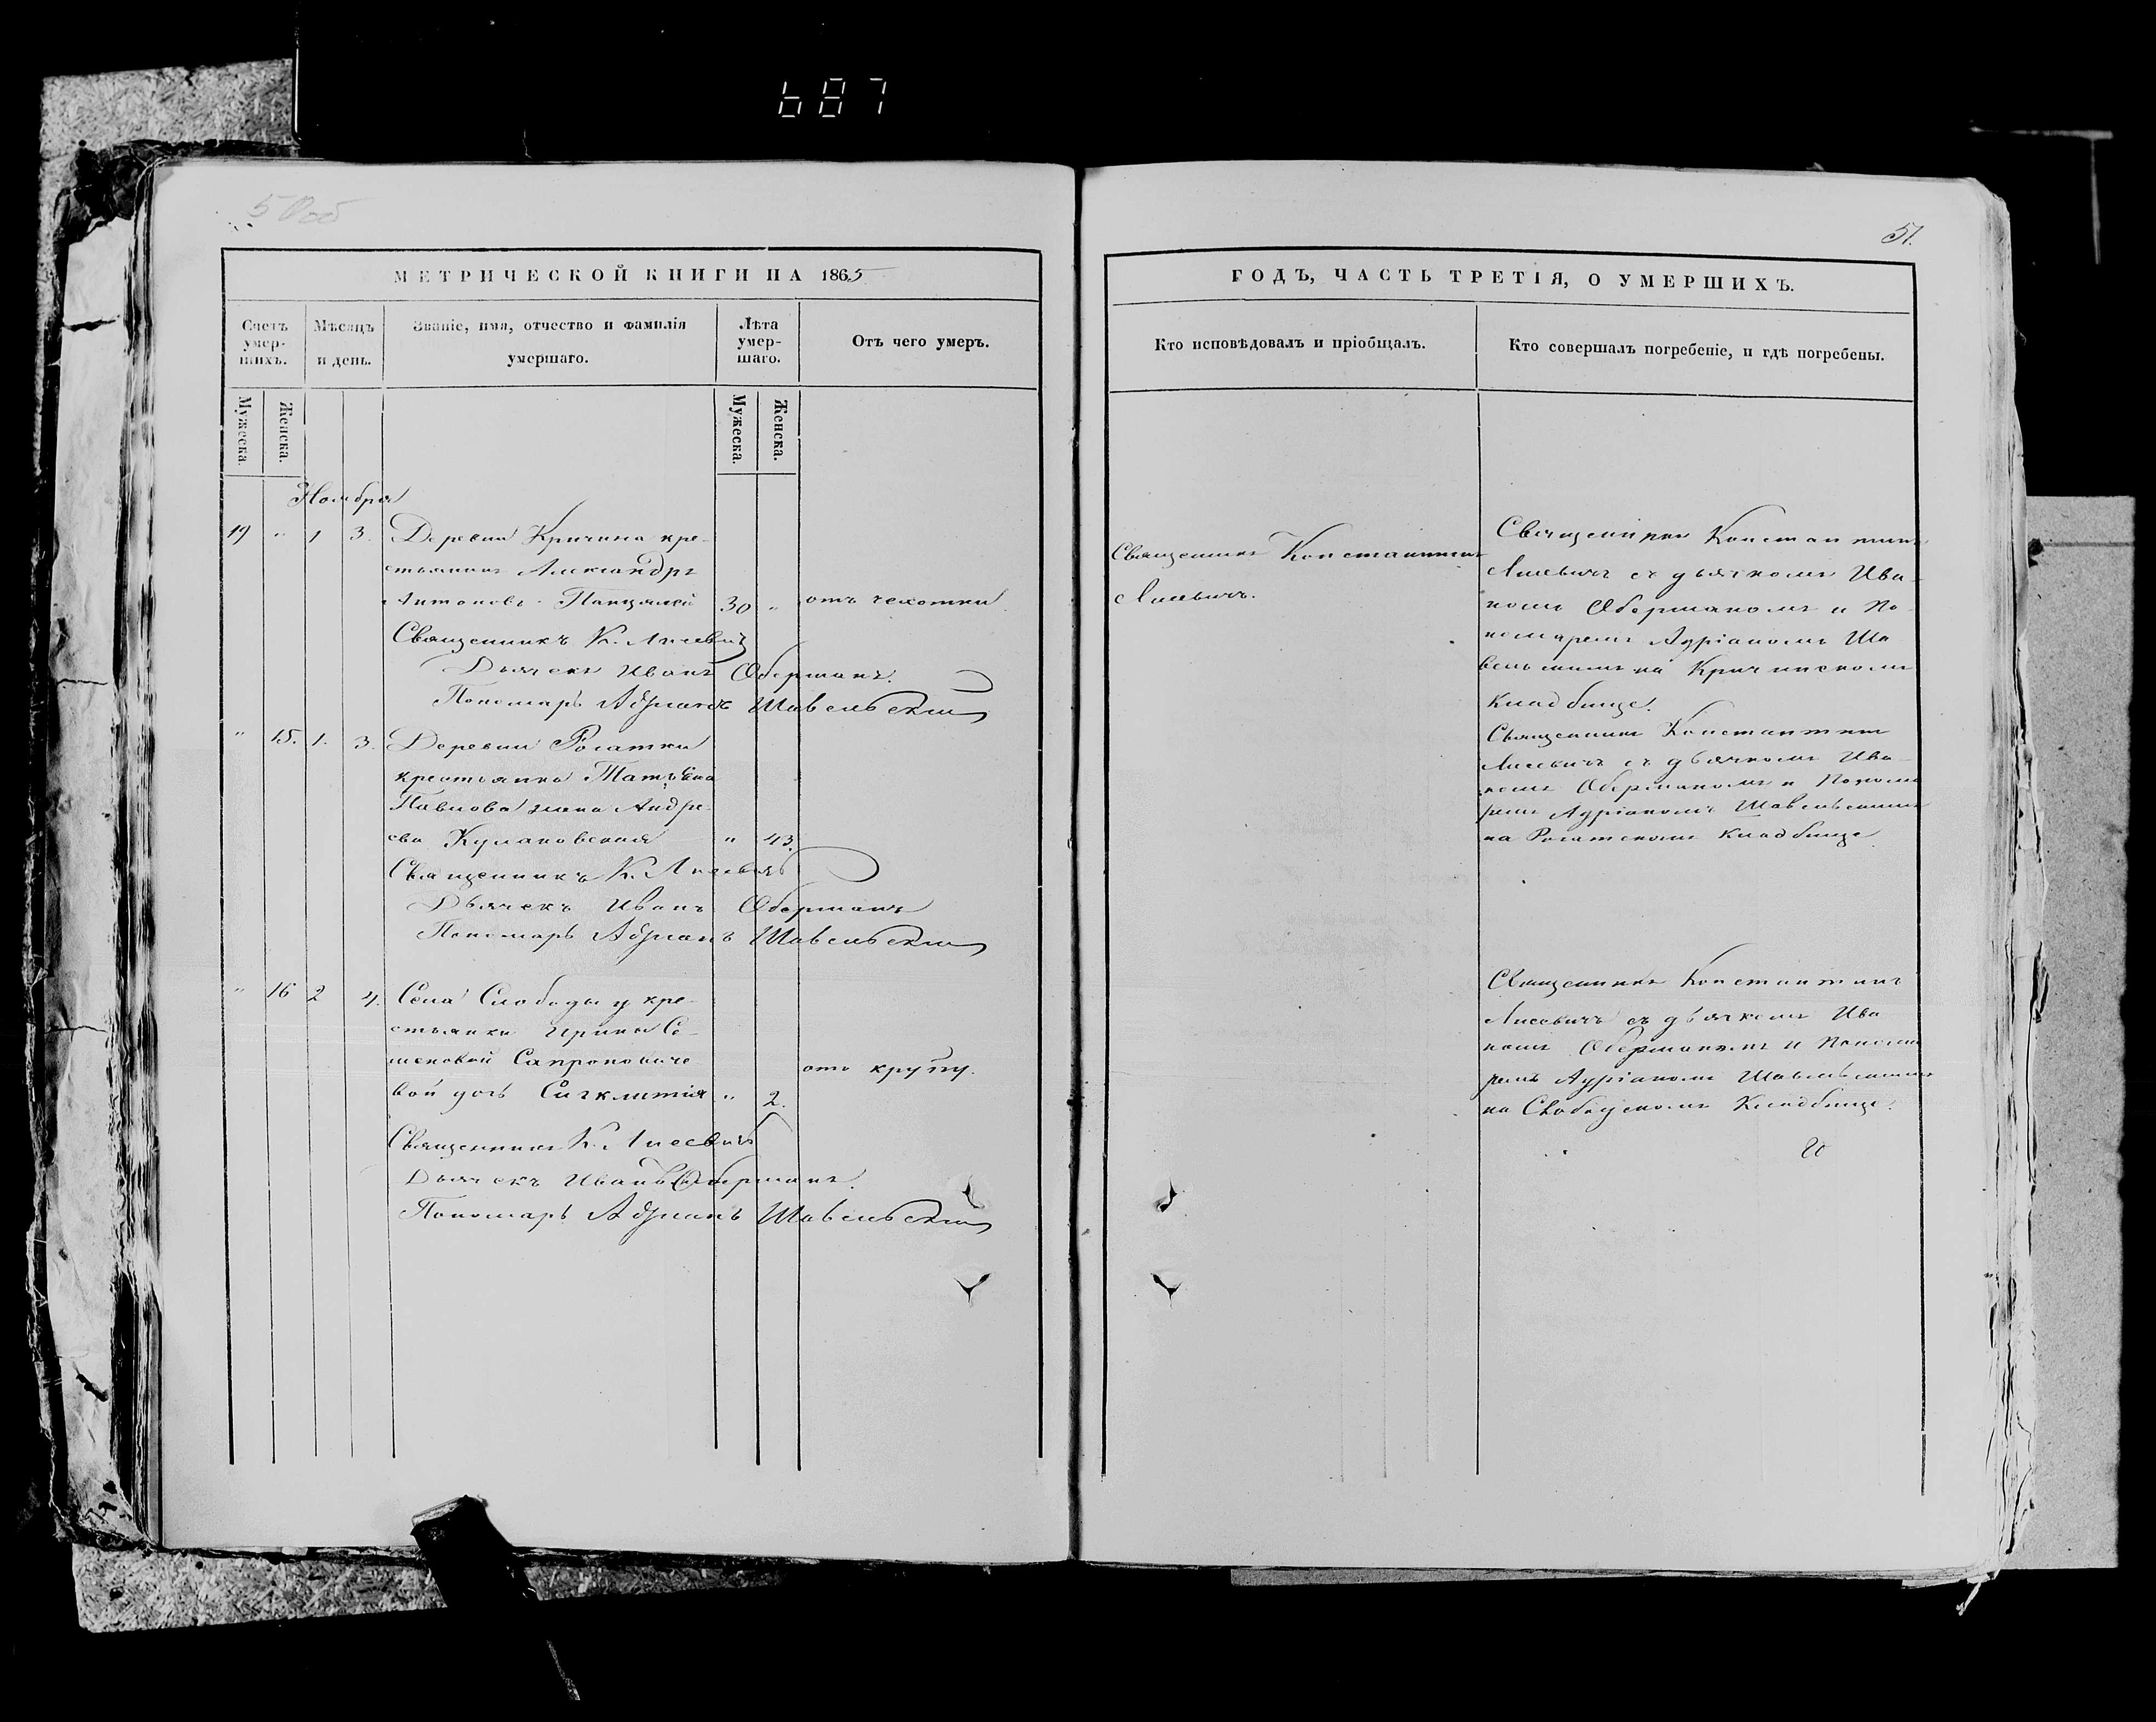 687
50об
51.
МЕТРИЧЕСКОЙ КНИГИ НА 1865
ГОДЪ, ЧАСТЬ ТРЕТІЯ, О УМЕРШИХЪ.
Счетъ умер-шихъ.
Мѣсяцъ и день.
Званіе, имя, отчество и фамилія умершаго.
Лѣта умер-шаго.
Отъ чего умеръ.
Кто исповѣдовалъ и пріобщалъ.
Кто совершалъ погребеніе, и гдѣ погребены.
Мужеска.
Женска.
Мужеска.
Женска.
Ноября
19 " 1 3. Деревни Кричина кре-
стьянинъ Александръ
Антоновъ 30 " отъ чехотки.
Священникъ К. Лисевичъ
Дьячекъ Иванъ Оберманъ.
Пономарь Адріанъ Шавельскій
Священникъ Константинъ
Лисевичъ.
Священникъ Константинъ
Лисевичъ съ дьячкомъ Ива-
номъ Оберманомъ и по-
номаремъ Адріаномъ Ша
вельскимъ на Кричинскомъ
кладбище.
" 15. 1. 3. Деревни Рогатки
крестьянка Татьяна
Павлова жена Андре-
ева Кулаковская " 43.
Священникъ К. Лисевичъ
Дьячекъ Иванъ Оберманъ
Пономарь Адріанъ Шавельскій
Священникъ Константинъ
Лисевичъ съ дьячкомъ Ива-
номъ Оберманомъ и Понома
ремъ Адріаномъ Шавельскимъ
на Рогатскомъ кладбище.
" 16 2 4. Села Слободы у кре-
стьянки Ирины Се-
меновой
вой дочь Сигклитія " 2.
отъ крупу.
Священникъ К. Лисевичъ
Дьячекъ Иванъ Оберманъ.
Пономарь Адріанъ Шавельскій
Священникъ Константинъ
Лисевичъ съ дьячкомъ Ива
номъ Оберманомъ и Понома
ремъ Адріаномъ Шавельскимъ
на Слободскомъ Кладбище.